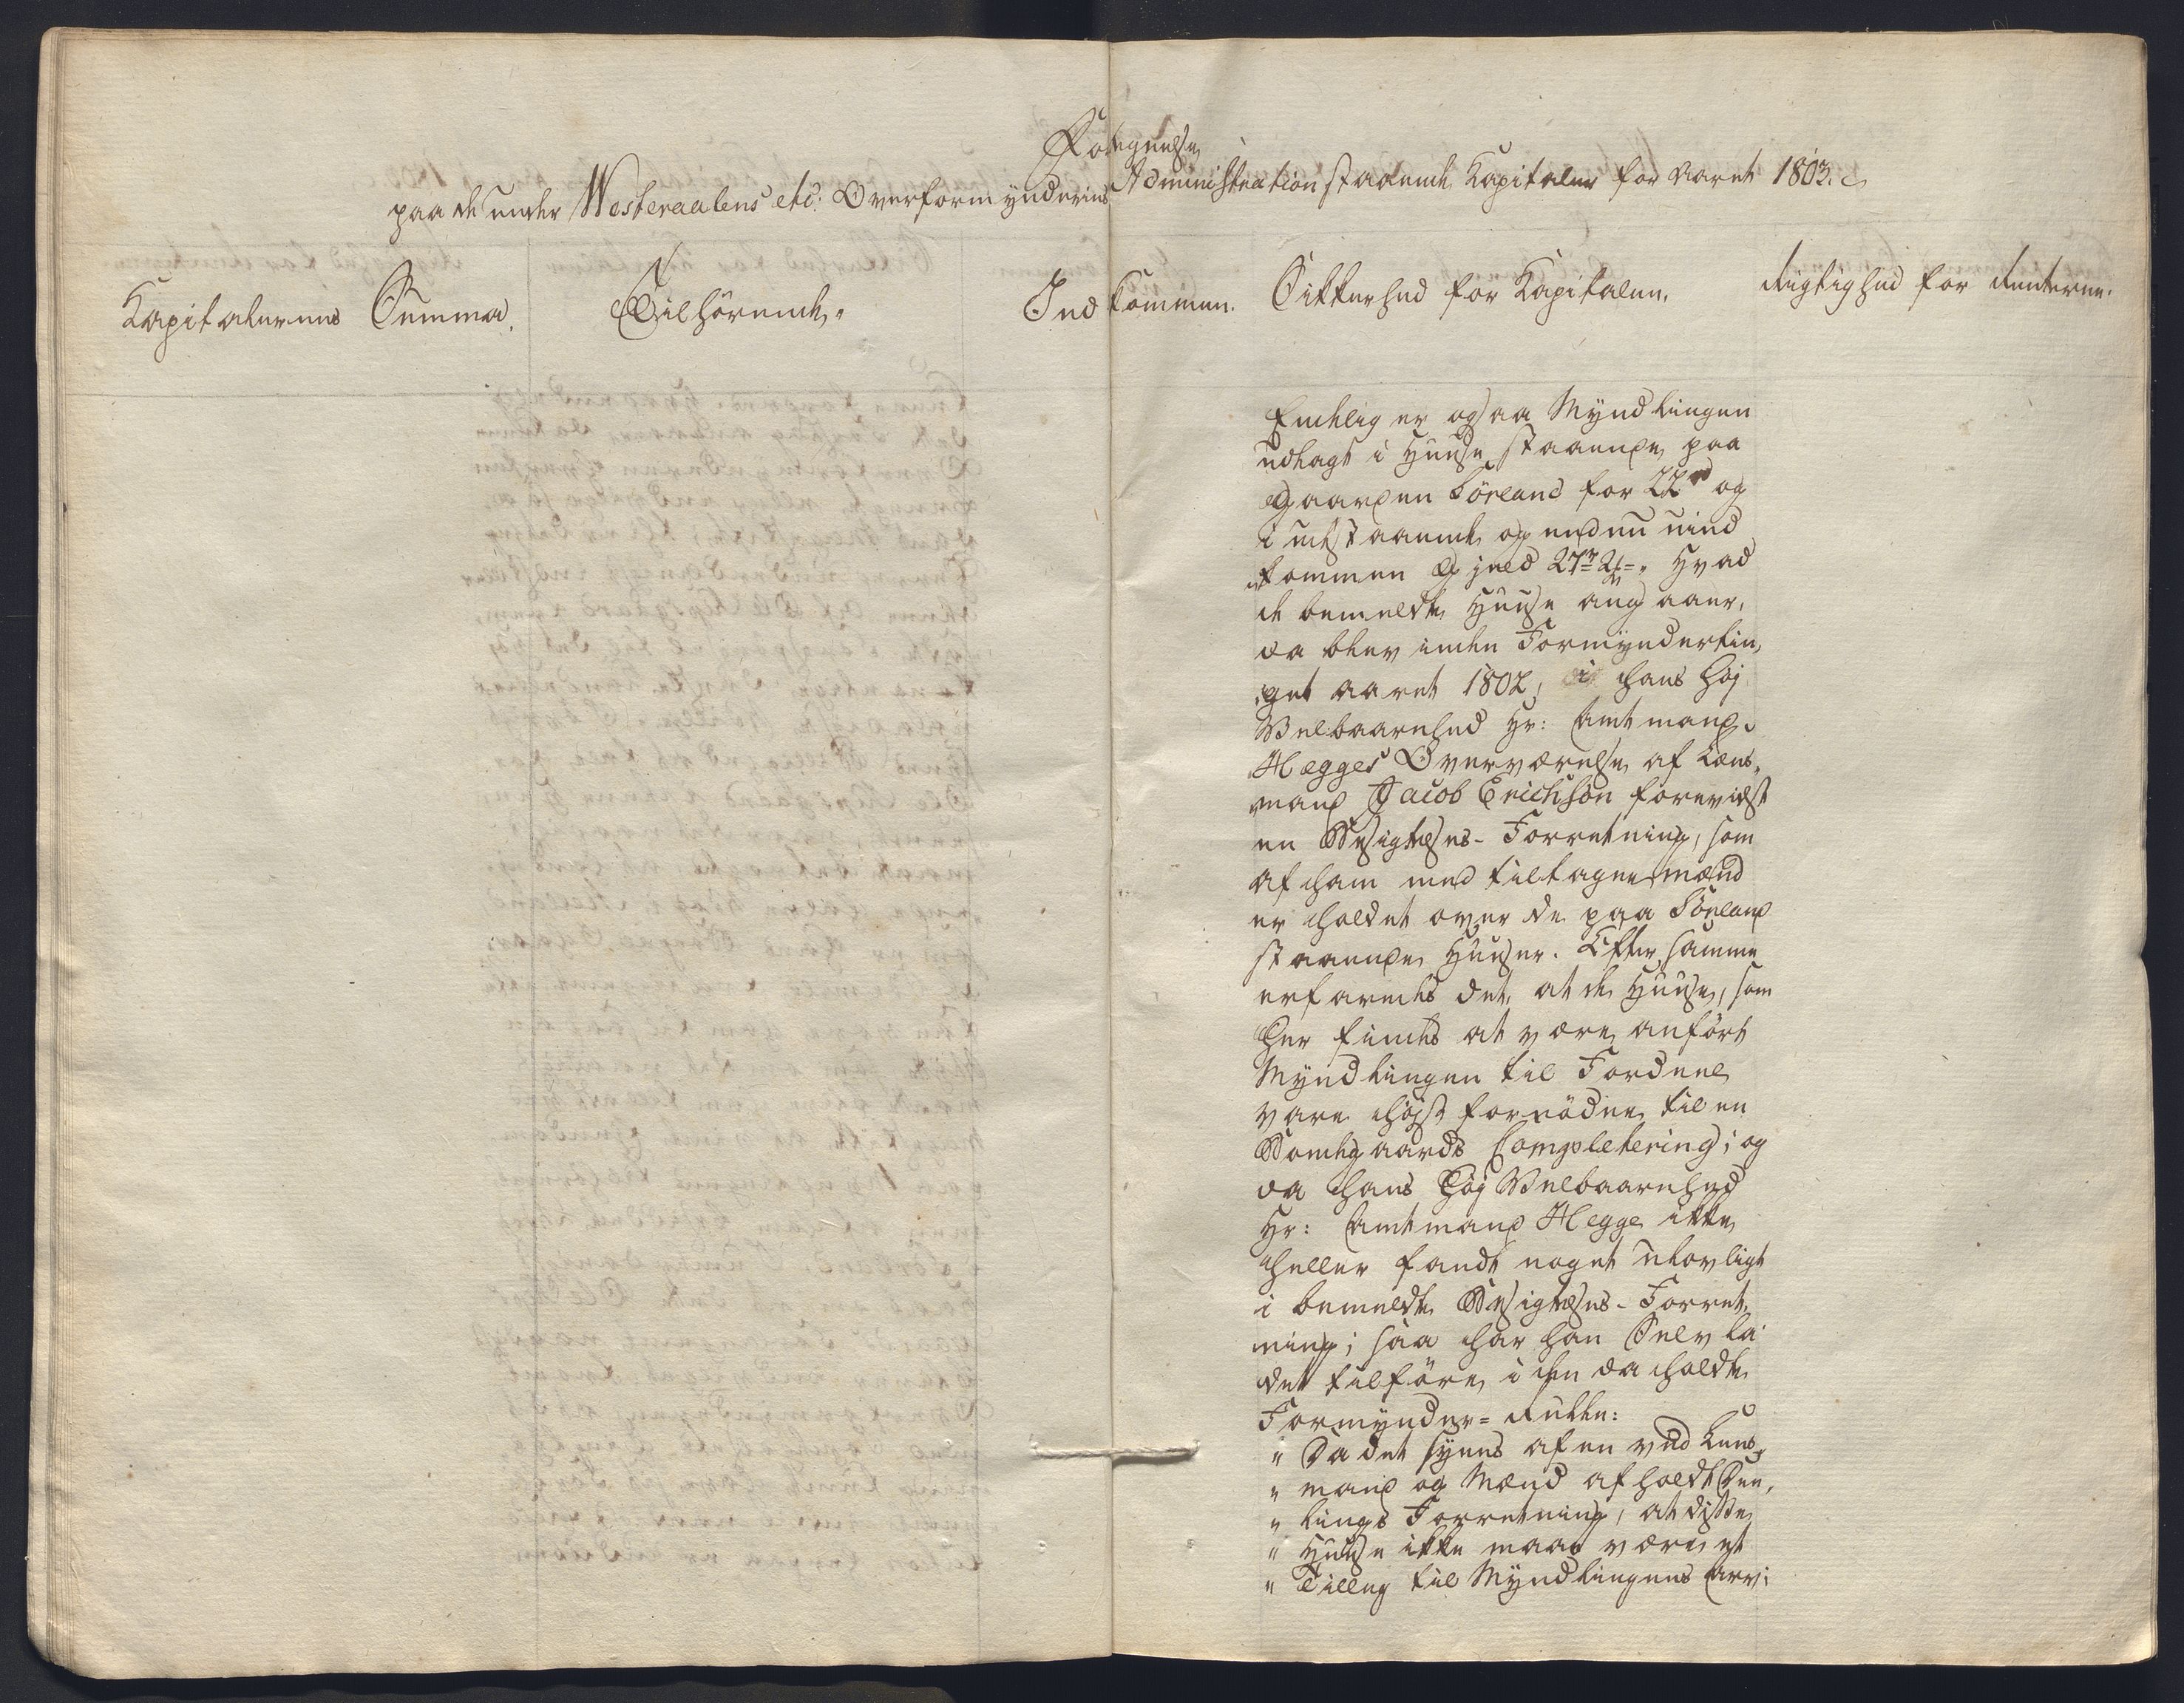 Fortegnelse
paa de under Westeraalens etc: Overformynderies Administration staaende Kapitaler for Aaret 1803.
Kapitalernes Summa.
Tilhørende.
Indkommen.
Sikkerhed for Kapitalen.
Rigtighed for Renterne.
Endelig er ogsaa Myndlingen
udlagt i Huuse staaende paa
Gaarden Sörland for 22 rd og
i udestaaende og endnu uind
kommen Gjæld 27 r 2 Hvad
de bemeldte Huuse angaaer,
da blev under Formyndertin,
get aaret 1802, i hans Høj
Velbaarenhed Hr: Amtmand
Hegges Overværelse af Lens,
mand Jacob Erichsön foreviist
en Besigtelses-Forretning, som
af ham med tiltagne Mænd
er holdet over de paa Sörland
staaende Huuser. Efter samme
erfaredes det, at de Huuse, som
her findes at være anført
Myndlingen til Fordeel
vare højst fornödne til en
Bondegaards Completering; og
da hans Høj Velbaarenhed
Hr: Amtmand Hegge ikke
heller fandt noget ulovligt
i bemeldte Besigtelses-Forret,
ning; saa har han Selv la
det tilföre i den da holdte
Formynder-Rulle:
" Da det synes af en ved Lens,
" mand og Mænd afholdt
" lings Forretning, at disse
" Huuse ikke maae være et
" Tillæg til Myndlingens Arv;